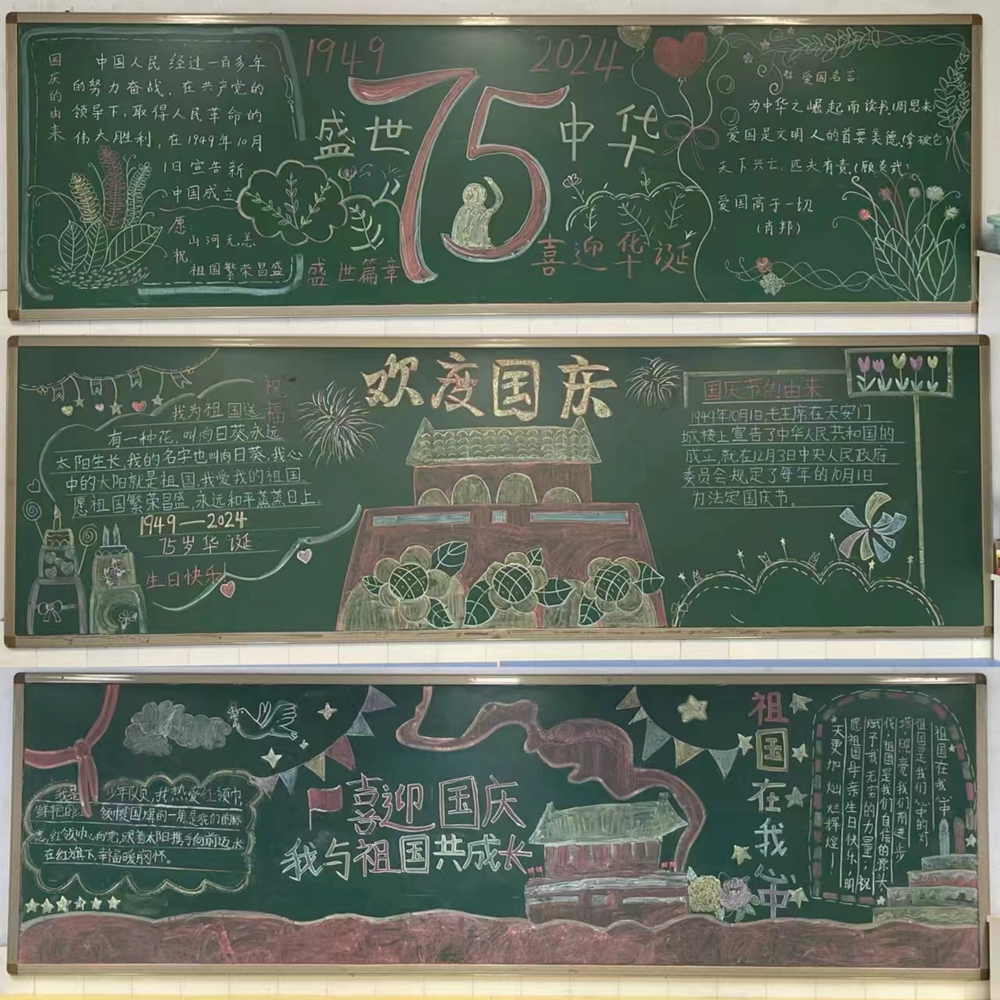 国庆的由来
中国人民经过一百多年
的努力奋战，在共产党的
领导下，取得人民革命的
伟大胜利，在1949年10月
1日宣告新
中国成立
愿
山河无恙
祝
祖国繁荣昌盛
1949 2024
盛世 75 中华
盛世篇章
喜迎华诞
爱国名言
为中华之崛起而读书(周恩来)
爱国是文明人的首要美德(拿破仑)
天下兴亡，匹夫有责(顾炎武)
爱国高于一切
(肖邦)
欢度国庆
祝福
我为祖国送
有一种花，叫向日葵，永远
太阳生长，我的名字也叫向日葵，我心
中的太阳就是祖国，我爱我的祖国
愿祖国繁荣昌盛，永远和平蒸蒸日上
1949—2024
75岁华诞
生日快乐!
国庆节的由来
1949年10月1日，毛主席在天安门
城楼上宣告了中华人民共和国的
成立，就在12月3日中央人民政府
委员会规定了每年的10月1日
为法定国庆节。
我是 少年队员，我热爱红领巾
领巾是国旗的一角是我们的标
志，红领巾心向党，跟着太阳携手向前迈
在红旗下幸福暖胸怀。
喜迎国庆
我与祖国共成长
祖国在我心中
祖国在我心中
祖国是我们心中的灯
塔，照亮我们前进步
伐，祖国是我们自信的源头
赋予我无穷的力量，祝
愿祖国母亲生日快乐，明
天更加灿烂辉煌！